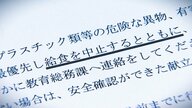 プラスチック類等の危険な異物、有
最優先し給食を中止するとともに
かに教育総務課へ連絡をしてくだ
場合は、安全確認ができた献立